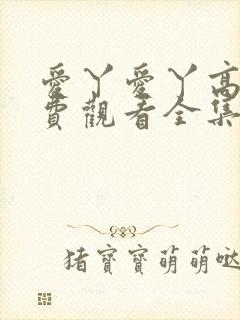 愛丫愛丫高
費觀看全集
猪寶寶萌萌噠